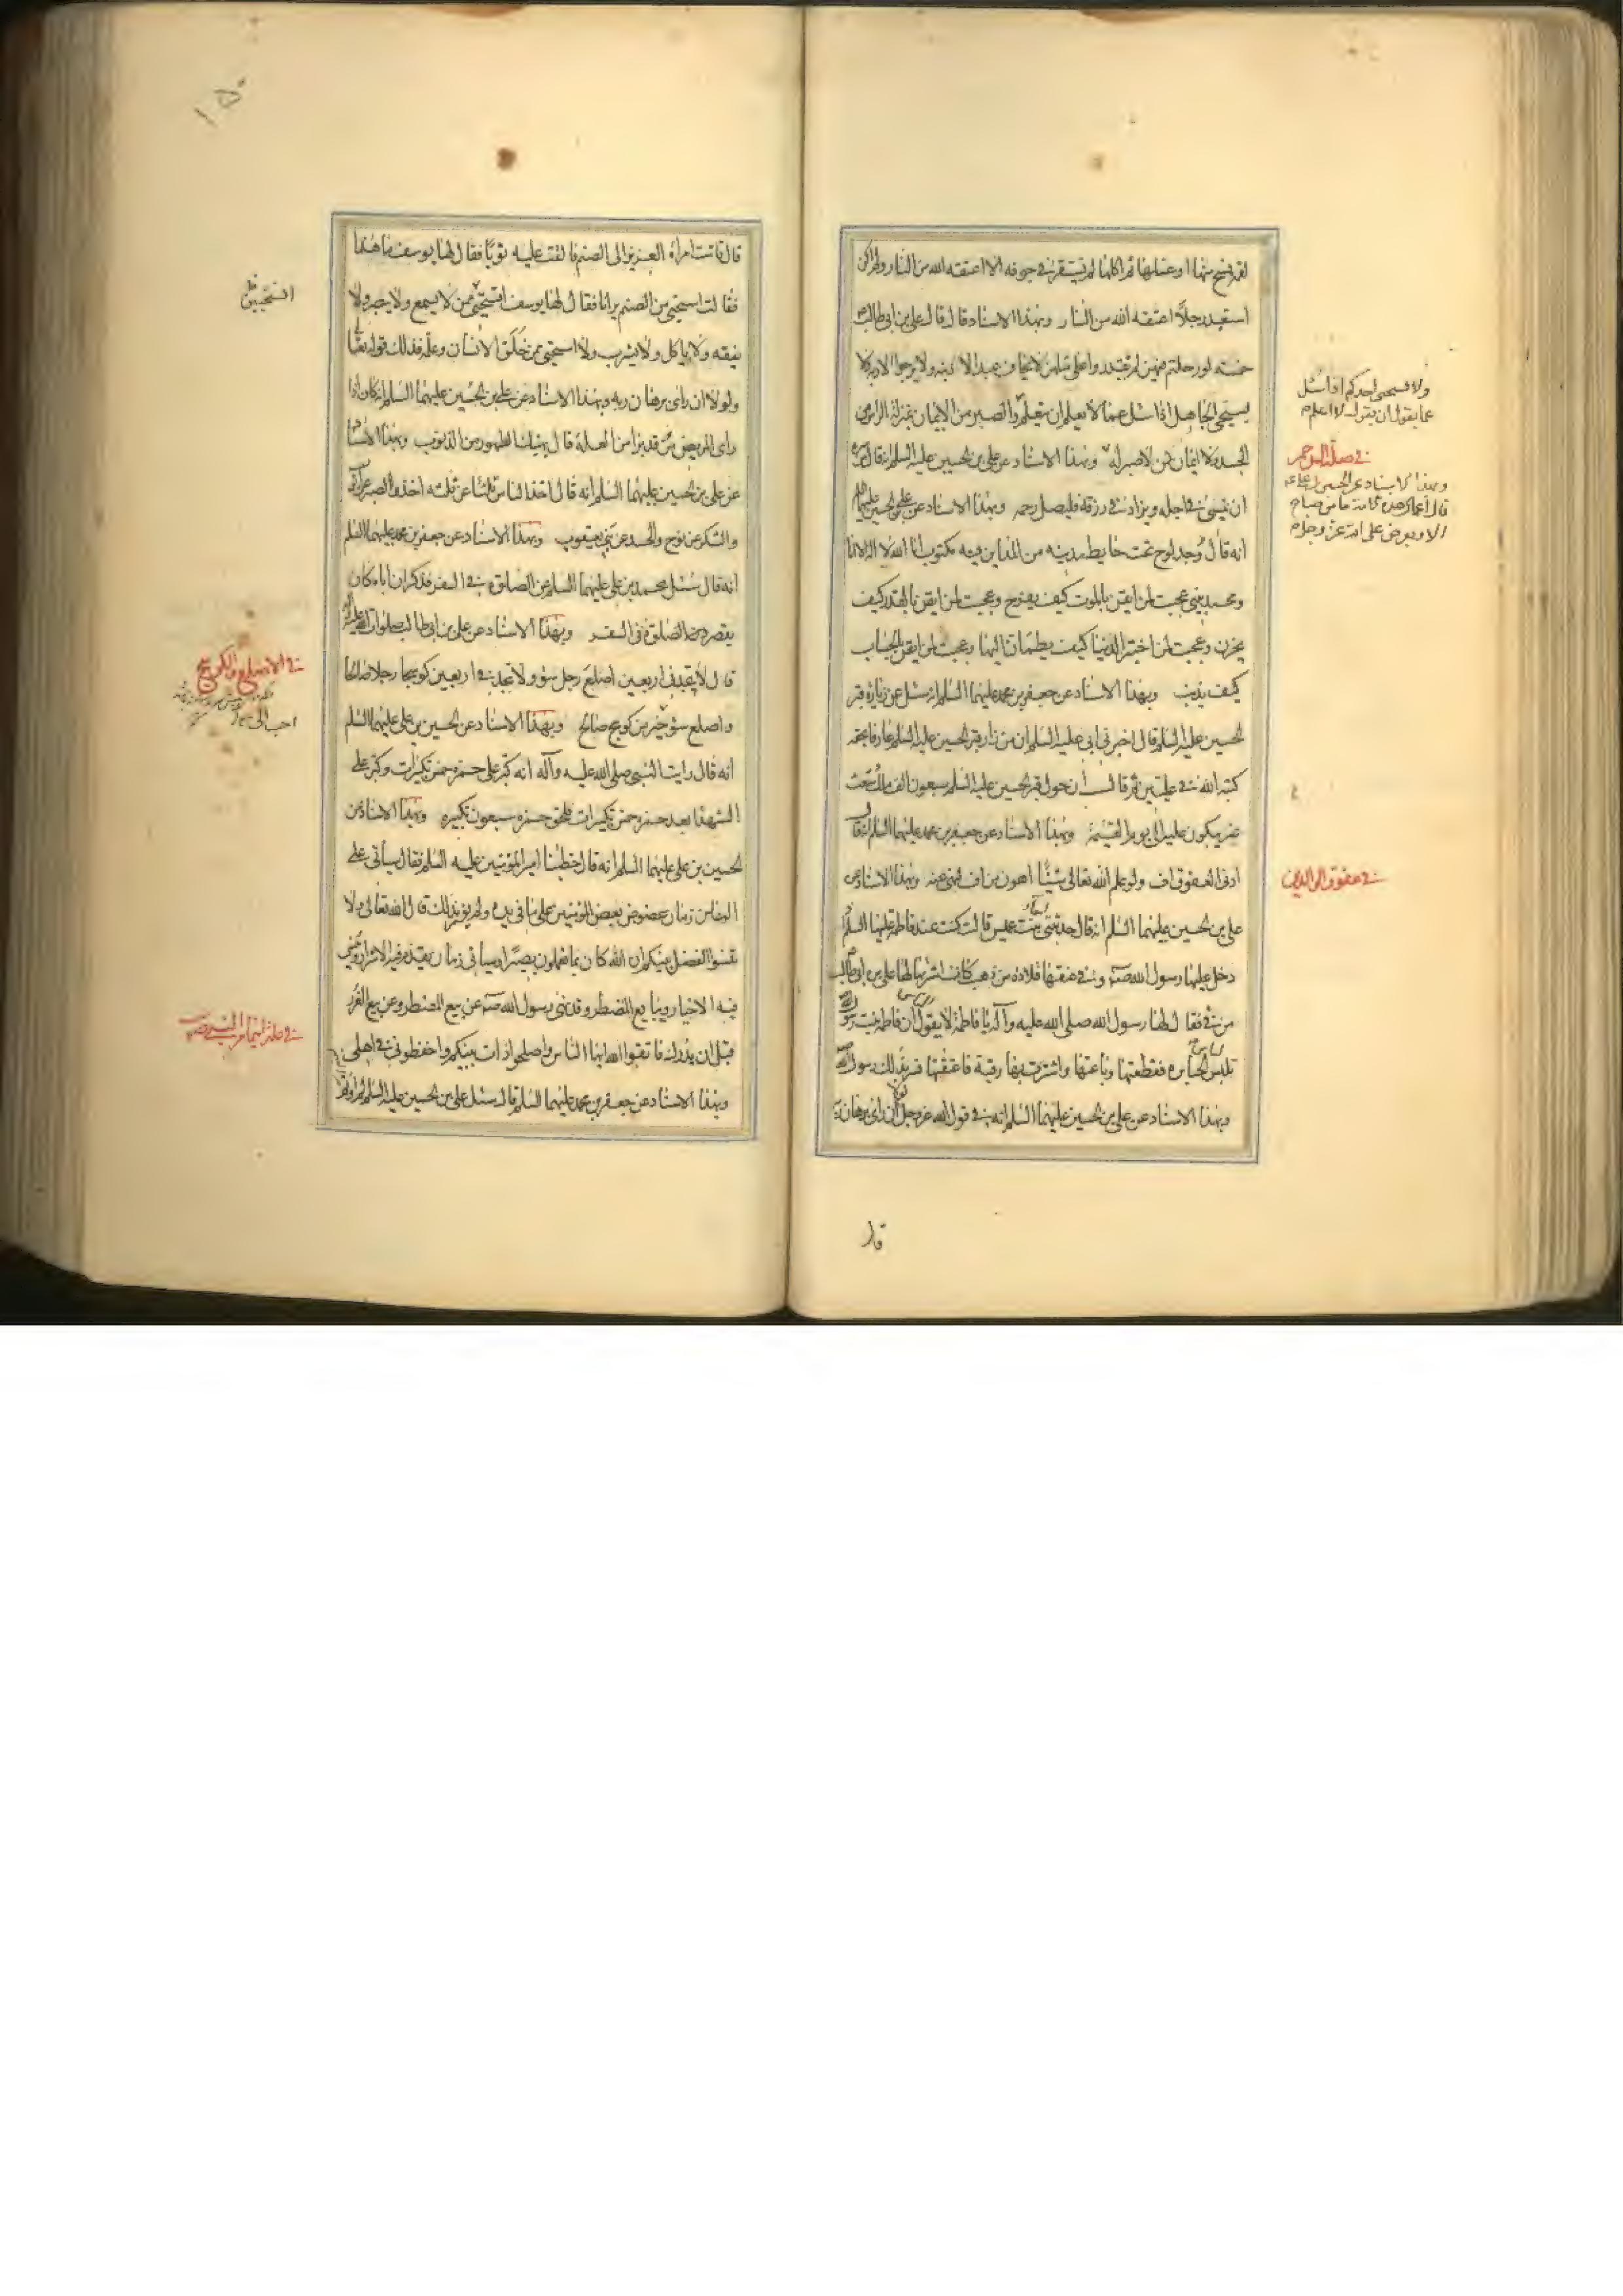 لقمة فمسح منها او غسلها ثم اكلها لم تستقر في جوفه الا اعتقه الله من النار ولم اكن
استعبد رجلا اعتقه الله من النار وبهذا الاسناد قال قال علي بن ابي طالب
خمسة لو رحلتم فيهن لم تقدروا على مثلهن لا يخاف عبد الا ذنبه ولا يرجوا الا ربه ولا
يستحيي الجاهل اذا سئل عما لا يعلم ان يتعلم والصبر من الايمان بمنزلة الراس من
الجسد ولا ايمان لمن لا صبر له وبهذا الاسناد عن علي بن الحسين عليه السلم انه قال
ان ينسئ في اجله ويزاد في رزقه فليصل رحمه وبهذا الاسناد عن علي بن الحسين عليهما
انه قال وجد لوح تحت حايط مدينه من المداين فيه مكتوب انا الله لا اله الا انا
ومحمد نبيي عجبت لمن ايقن بالموت كيف يفرح وعجبت لمن ايقن بالقدر كيف
يحزن وعجبت لمن اختبر الدنيا كيف يطمان اليها وعجبت لمن ايقن بالحساب
كيف يذنب وبهذا الاسناد عن جعفر بن محمد عليهما السلم انه سئل عن زيارة قبر
الحسين عليه السلم قال اخبرني ابي عليه السلم ان من زار قبر الحسين عليه السلم عارفا بحقه
كتبه الله في عليين ثم قال ان حول قبر الحسين عليه السلم سبعون الف ملك شعث
غبر يبكون عليه الى يوم القيمة وبهذا الاسناد عن جعفر بن محمد عليهما السلم انه قال
ادنى العقوق اف ولو علم الله تعالى شيئا اهون من اف لنهى عنه وبهذا الاسناد عن
علي بن الحسين عليهما السلم انه قال حدثتني اسماء بنت عميس قالت كنت عند فاطمة عليها السلم اذ
دخل عليها رسول الله صلى وفي عنقها قلادة من ذهب كانت اشتراها لها علي بن ابي طالب
من فئ فقال لها رسول الله صلى الله عليه وآله يا فاطمة لا يقول الناس ان فاطمة بنت رسول الله
تلبس لباس الجبابرة فقطعتها وباعتها واشترت بها رقبة فاعتقتها فسر بذلك رسول الله
وبهذا الاسناد عن علي بن الحسين عليهما السلم انه في قول الله عز وجل لولا ان راى برهان ربه
قال
ولا يستحيي احدكم اذا سئل
عما يعلم ان يقول لا اعلم
في صلة الرحم
وبهذا الاسناد عن الحسين
قال اعمال هذه الامة ما من صباح
الا ويعرض على الله عز وجل
في عقوق الوالدين
١٥٠
قال قامت امراة العزيز الى الصنم فالقت عليه ثوبا فقال لها يوسف ما هذا
فقالت استحيي من الصنم يرانا فقال لها يوسف اتستحيين ممن لا يسمع ولا يبصر ولا
يفقه ولا ياكل ولا يشرب ولا استحيي ممن خلق الانسان وعلمه فذلك قوله تعالى
ولولا ان راى برهان ربه وبهذا الاسناد عن علي بن الحسين عليهما السلم انه كان اذا
راى المريض قد برا من العلة قال يهنيك الطهور من الذنوب وبهذا الاسناد
عن علي بن الحسين عليهما السلم انه قال اخذ الناس ثلثا عن ثلثه اخذوا الصبر عن ايوب
والشكر عن نوح والحسد عن بني يعقوب وبهذا الاسناد عن جعفر بن محمد عليهما السلم
انه قال سئل محمد بن علي عليهما السلم عن الصلوة في السفر فذكر ان اباه كان
يقصر الصلوة في السفر وبهذا الاسناد عن علي بن ابي طالب صلوات الله عليه
قال لا تجد في اربعين اصلع رجل سوء ولا تجد في اربعين كوسجا رجلا صالحا
واصلع سوء خير من كوسج صالح وبهذا الاسناد عن الحسين بن علي عليهما السلم
انه قال رايت النبي صلى الله عليه وآله انه كبر على حمزة خمس تكبيرات وكبر على
الشهدا بعد حمزة خمس تكبيرات فلحق حمزة سبعون تكبيره وبهذا الاسناد عن
الحسين بن علي عليهما السلم انه قال خطبنا امير المؤمنين عليه السلم فقال سيأتي على
الناس زمان عضوض يعض المؤمن على ما في يده ولم يؤمر بذلك قال الله تعالى ولا
تنسوا الفضل بينكم ان الله كان بما تعملون بصيرا وسيأتي زمان يقدم فيه الاشرار وينسى
فيه الاخيار ويبايع المضطر وقد نهى رسول الله صلى عن بيع المضطر وعن بيع الغرر
فاتقوا الله ايها الناس واصلحوا ذات بينكم واحفظوني في اهلي
وبهذا الاسناد عن جعفر بن محمد عليهما السلم قال سئل علي بن الحسين عليه السلم لم اوتم
اتستحيين
في الاصلع والكوسج
احب الي